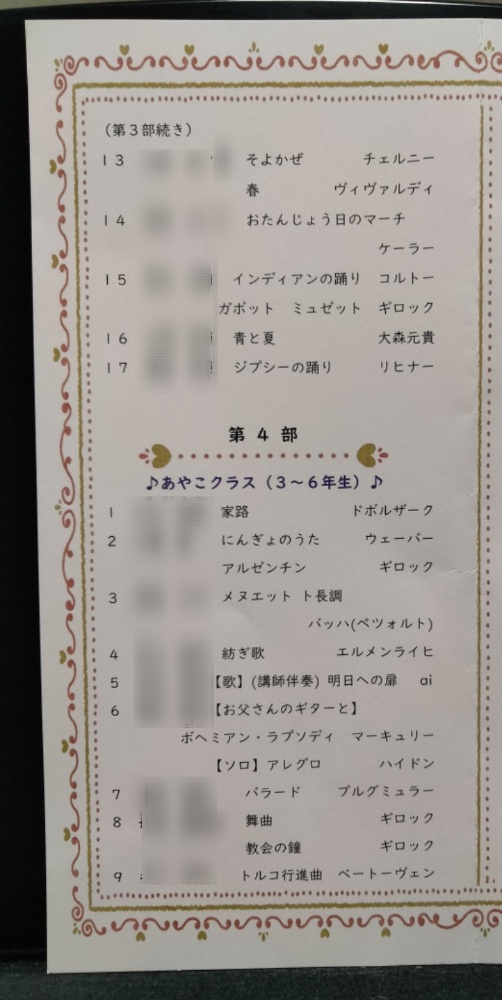 (第3部続き)
13 そよかぜ チェルニー
春 ヴィヴァルディ
14 おたんじょう日のマーチ
ケーラー
15 インディアンの踊り コルトー
ガボット ミュゼット ギロック
16 青と夏 大森元貴
17 ジプシーの踊り リヒナー
第4部
♪あやこクラス(3〜6年生)♪
1 家路 ドボルザーク
2 にんぎょのうた ウェーバー
アルゼンチン ギロック
3 メヌエット ト長調
バッハ(ペツォルト)
4 紡ぎ歌 エルメンライヒ
5 【歌】(講師伴奏) 明日への扉 ai
6 【お父さんのギターと】
ボヘミアン・ラプソディ マーキュリー
【ソロ】アレグロ ハイドン
7 バラード ブルグミュラー
8 舞曲 ギロック
教会の鐘 ギロック
9 トルコ行進曲 ベートーヴェン